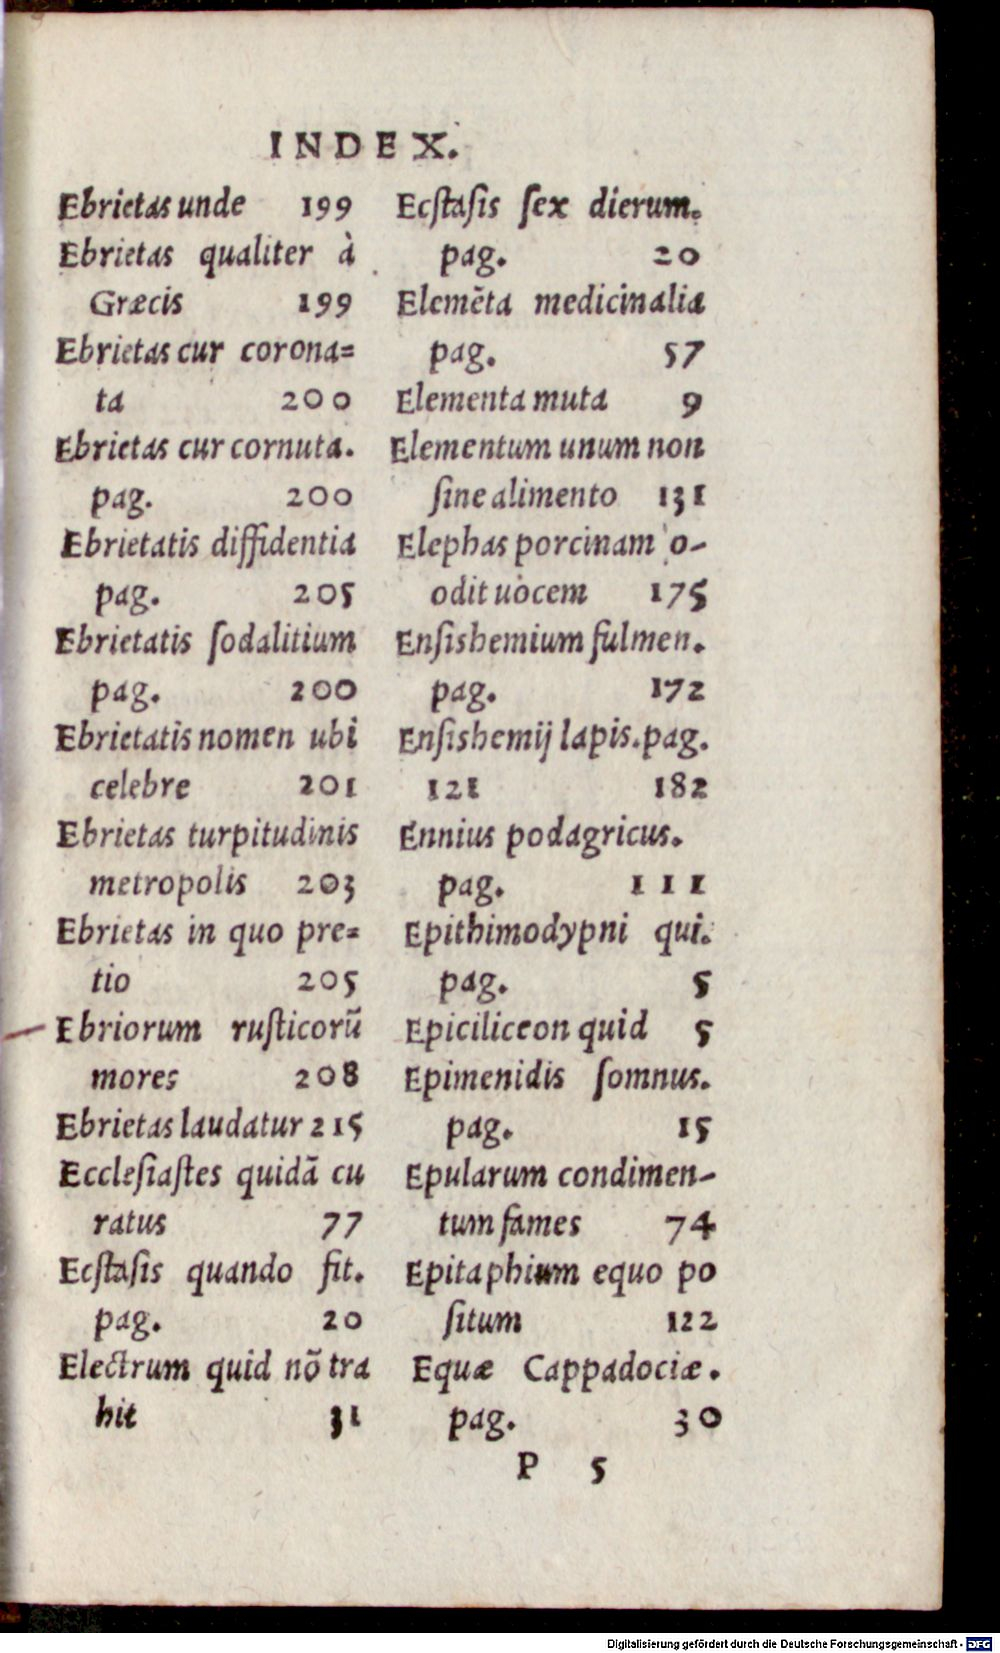 INDEX.
Ebrietas unde 199
Ebrietas qualiter à
Græcis 199
Ebrietas cur corona=
ta 200
Ebrietas cur cornuta.
pag. 200
Ebrietatis diffidentia
pag. 205
Ebrietatis ſodalitium
pag. 200
Ebrietatis nomen ubi
celebre 201
Ebrietas turpitudinis
metropolis 203
Ebrietas in quo pre=
tio 205
Ebriorum ruſticorū
mores 208
Ebrietas laudatur 215
Eccleſiaſtes quidā cu
ratus 77
Ecſtaſis quando fit.
pag. 20
Electrum quid nō tra
hit 31
Ecſtaſis ſex dierum.
pag. 20
Elemēta medicinalia
pag. 57
Elementa muta 9
Elementum unum non
ſine alimento 131
Elephas porcinam o-
odit uocem 175
Enſishemium fulmen.
pag. 172
Enſishemij lapis. pag.
121 182
Ennius podagricus.
pag. 111
Epithimodypni qui.
pag. 5
Epiciliceon quid 5
Epimenidis ſomnus.
pag. 15
Epularum condimen-
tum fames 74
Epitaphium equo po
ſitum 122
Equæ Cappadociæ.
pag. 30
P 5
Digitalisierung gefördert durch die Deutsche Forschungsgemeinschaft - DFG